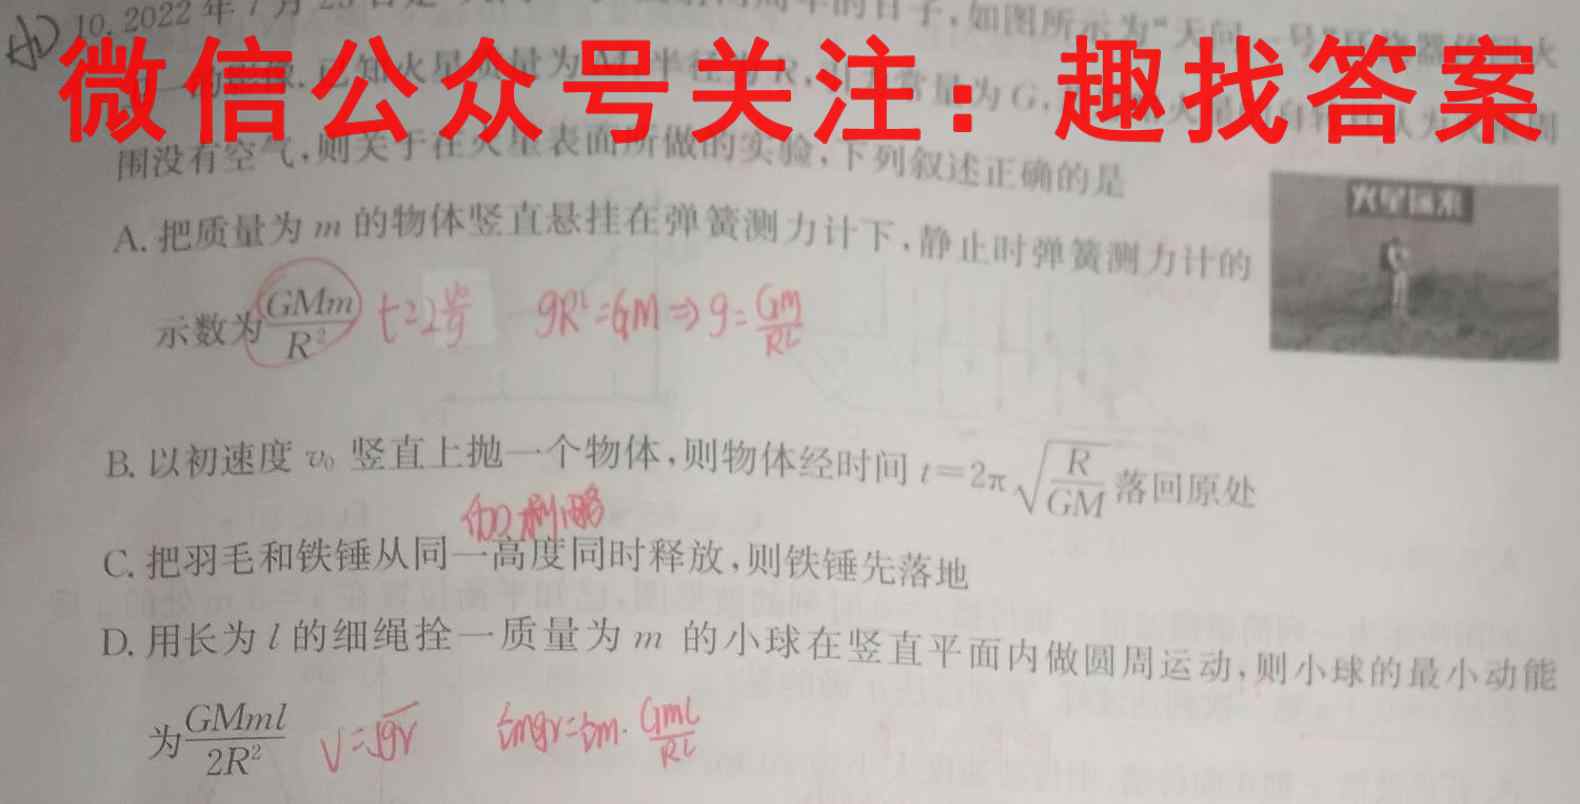 10. 2022年7月23日是
的日子,如图所示为“天问一号”
微信公众号关注：趣找答案
围没有空气,则关于在火星表面所做的实验,下列叙述正确的是
火星远来
A. 把质量为 m 的物体竖直悬挂在弹簧测力计下,静止时弹簧测力计的
示数为 GMm/R² t=2v₀/g gR²=GM⇒g=GM/R²
B. 以初速度 v₀ 竖直上抛一个物体,则物体经时间 t=2π√(R/GM) 落回原处
伽利略
C. 把羽毛和铁锤从同一高度同时释放,则铁锤先落地
D. 用长为 l 的细绳拴一质量为 m 的小球在竖直平面内做圆周运动,则小球的最小动能
为 GMml/2R² V=√gr ½mgr=½m·GMl/R²